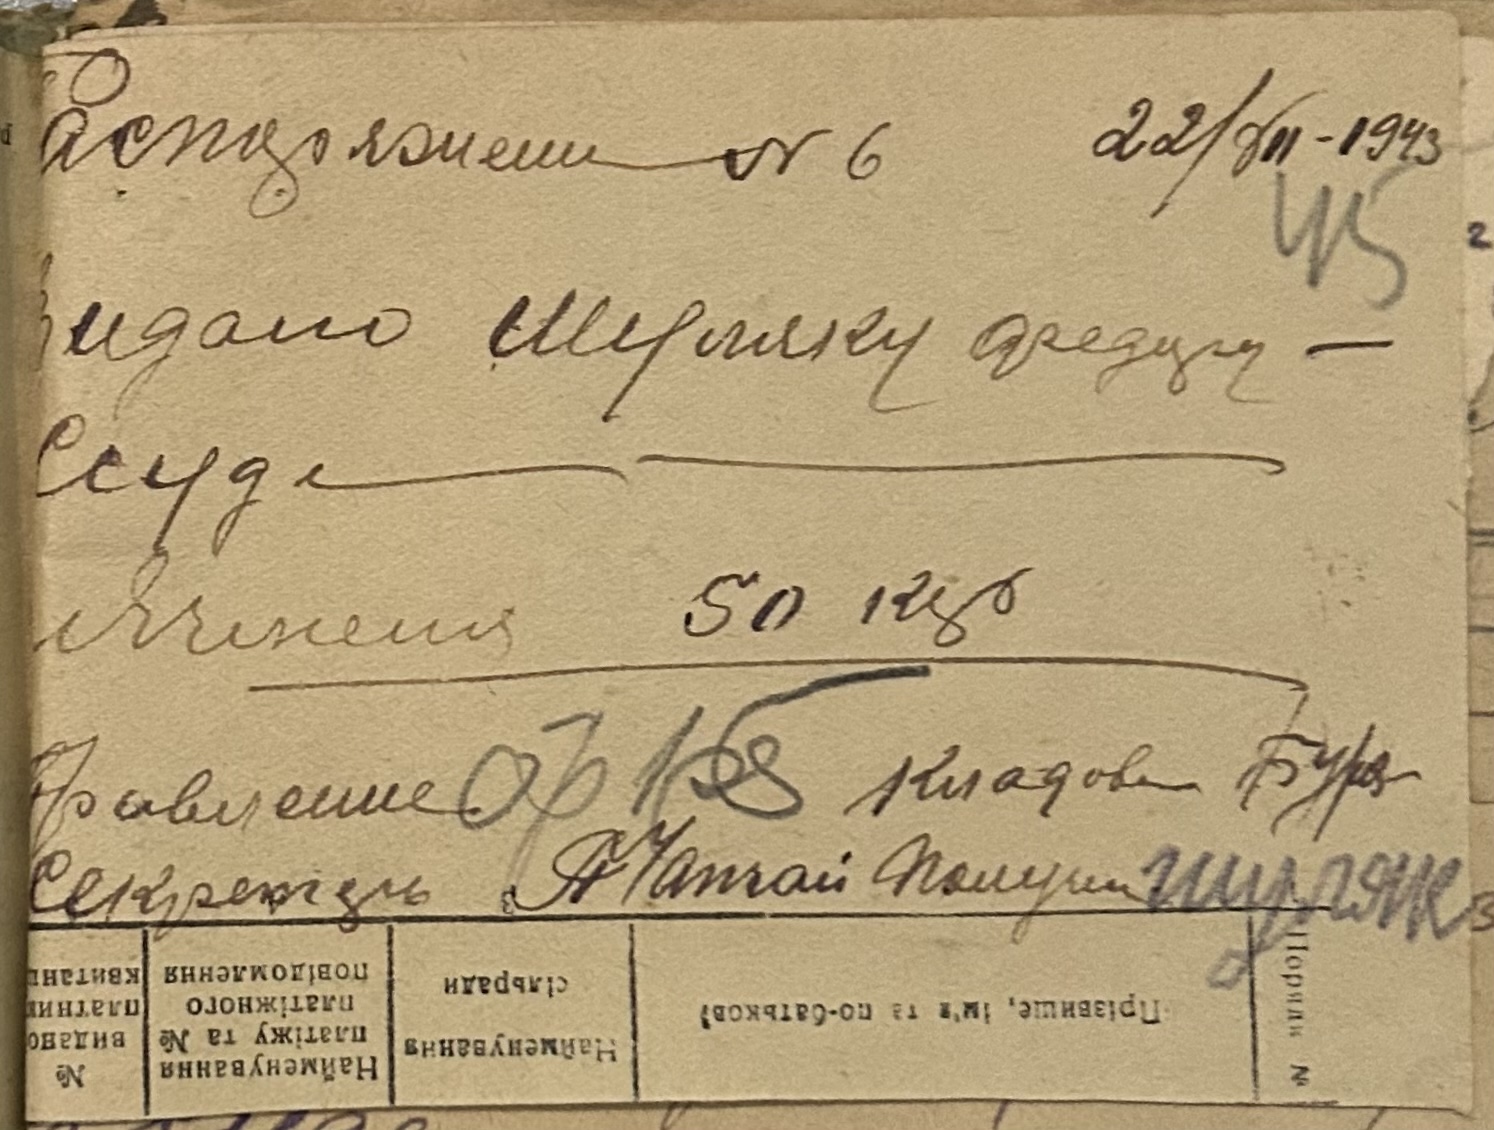 Распоряжение № 6 22/VII-1943
45
Видано Шуляку Федору —
Ссуда
Ячменя 50 кгр
Правление Кладов Бура
Секретарь Получил Шуляк
№ видано платник квитанц
Найменування платіжу та № платіжного повідомлення
Найменування сільради
Прізвище, ім'я та по-батькові
Порядк №